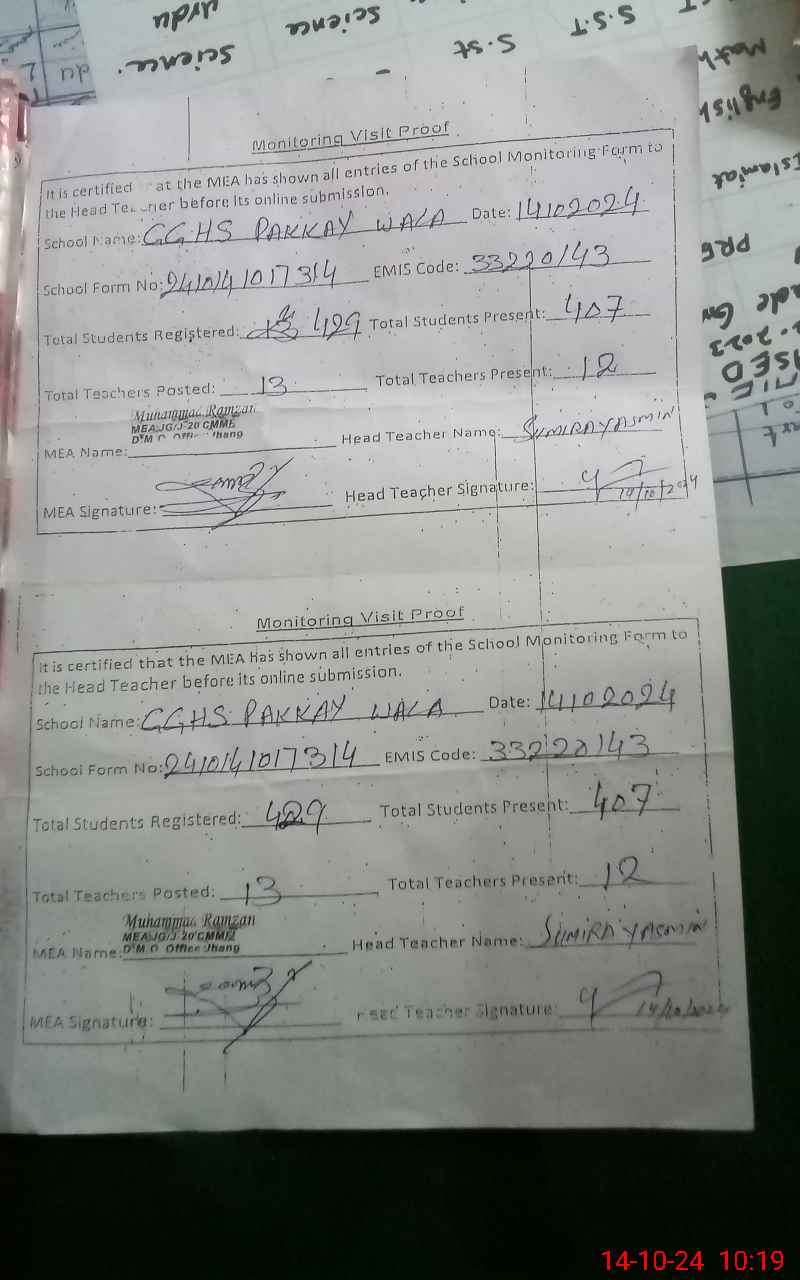 urdu
science
S.S.T
science.
S.st
Math
English
Islamiat
Monitoring Visit Proof
It is certified at the MEA has shown all entries of the School Monitoring Form to
the Head Teacher before its online submission.
School Name: GGHS PAKKAY WALA Date: 14102024
School Form No: 2410141017314 EMIS Code: 33220143
Total Students Registered: 429 Total Students Present: 407
Total Teachers Posted: 13 Total Teachers Present: 12
Muhammad Ramzan
MEA:JG/J-20 CMME
D.M.O. Office Jhang
MEA Name: Head Teacher Name: SUMIRA YASMIN
MEA Signature: Head Teacher Signature: 14/10/2024
Monitoring Visit Proof
It is certified that the MEA has shown all entries of the School Monitoring Form to
the Head Teacher before its online submission.
School Name: GGHS PAKKAY WALA Date: 14102024
School Form No: 2410141017314 EMIS Code: 33220143
Total Students Registered: 429 Total Students Present: 407
Total Teachers Posted: 13 Total Teachers Present: 12
Muhammad Ramzan
MEA:JG/J-20 CMME
D.M.O. Office Jhang
MEA Name: Head Teacher Name: SUMIRA YASMIN
MEA Signature: Head Teacher Signature: 14/10/2024
14-10-24 10:19